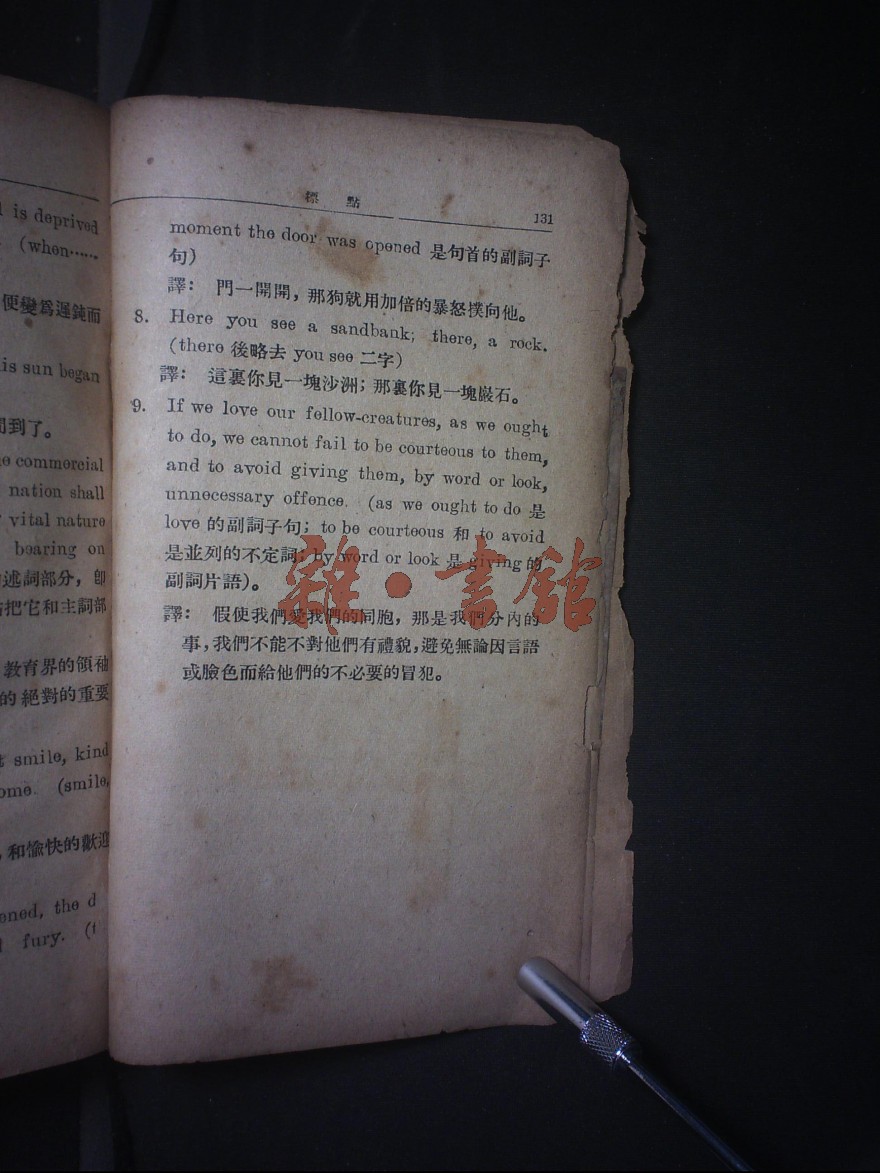 is deprived
(when……
便變爲遲鈍而
is sun began
到了。
commercial
nation shall
vital nature
bearing on
述詞部分，卽
把它和主詞部
教育界的領袖
的絕對的重要
smile, kind
ome. (smile,
和愉快的歡迎
oned, the d
fury. (t
標點 131
moment the door was opened 是句首的副詞子
句)
譯： 門一開開，那狗就用加倍的暴怒撲向他。
8. Here you see a sandbank; there, a rock.
(there 後略去 you see 二字)
譯： 這裏你見一塊沙洲；那裏你見一塊巖石。
9. If we love our fellow-creatures, as we ought
to do, we cannot fail to be courteous to them,
and to avoid giving them, by word or look,
unnecessary offence. (as we ought to do 是
love 的副詞子句；to be courteous 和 to avoid
是並列的不定詞；by word or look 是 giving 的
副詞片語)。
譯： 假使我們愛我們的同胞，那是我們分內的
事，我們不能不對他們有禮貌，避免無論因言語
或臉色而給他們的不必要的冒犯。
雜·書館